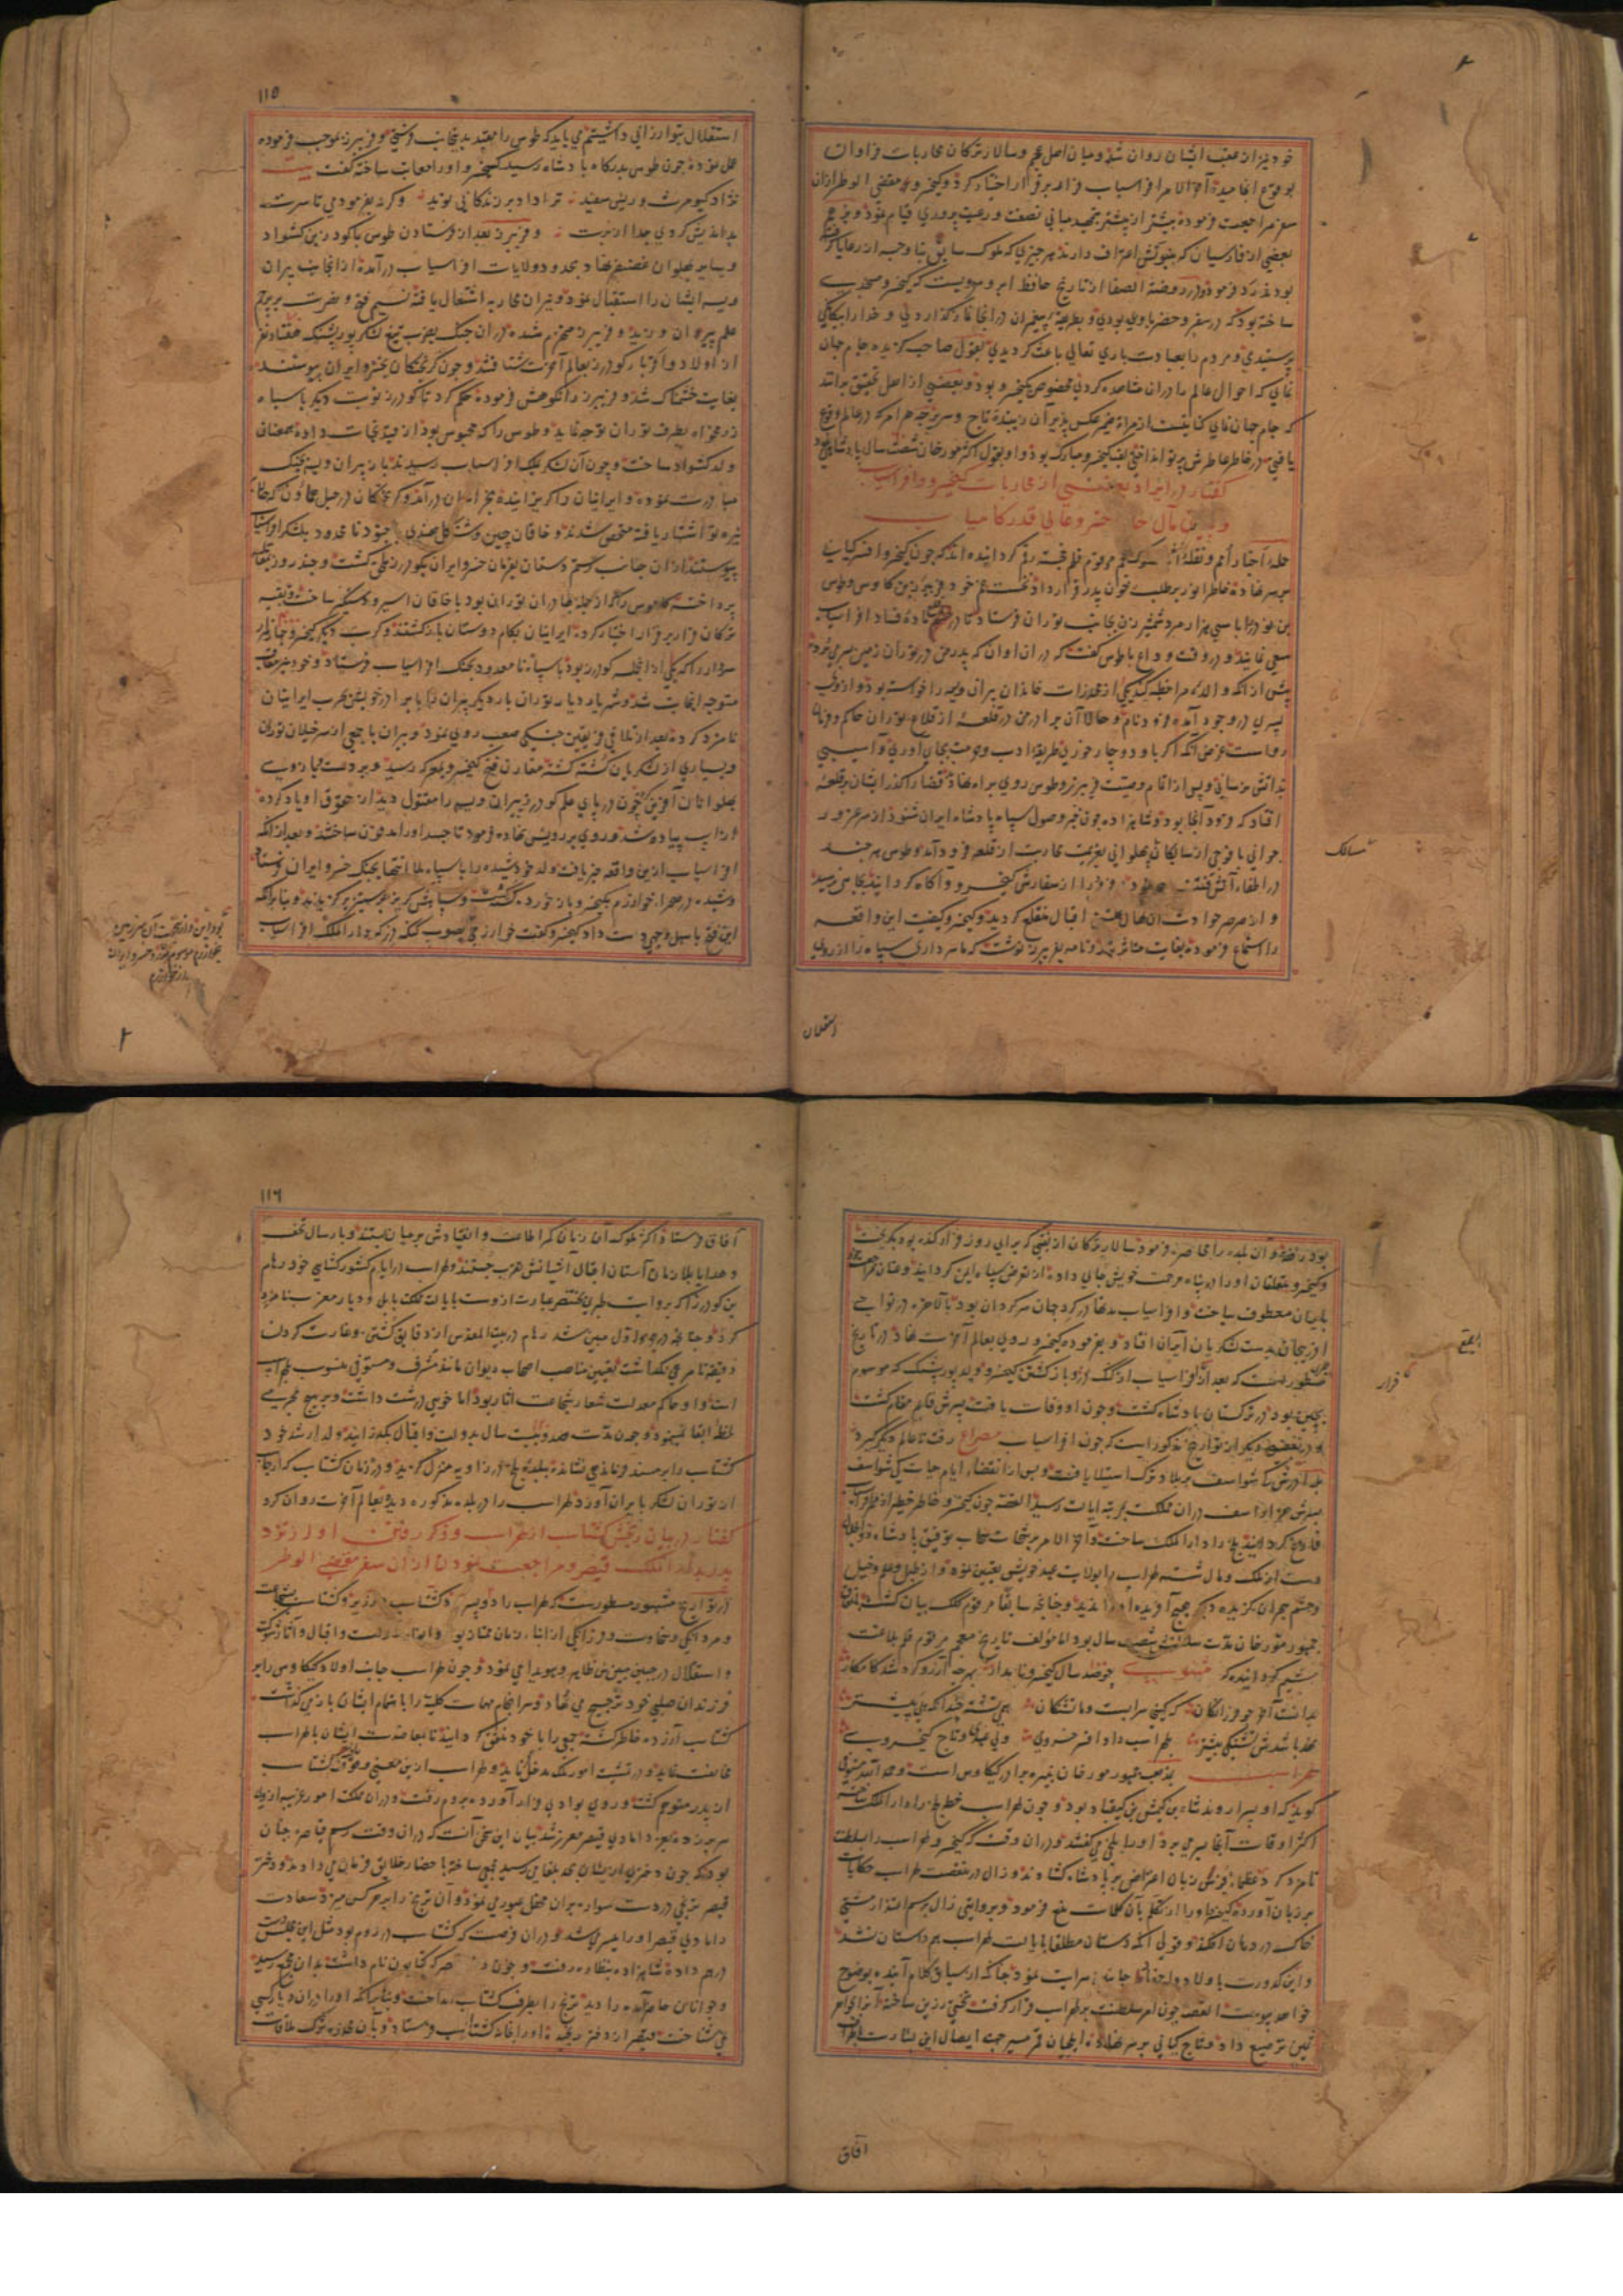 خود نیز از عقب ایشان روان شد و میان اهل عجم و سالار ترکان محاربات فراوان
بوقوع انجامید آخر الامر افراسیاب فرار بر قرار اختیار کرد و کیخسرو مقضی الوطر ازان
سفر مراجعت فرموده بیشتر از پیشتر بتمهید مبانی نصفت و رعیت پروری قیام نمود و
بعضی از فارسیان که اعتراف دارند هر چیزی که ملوک سابق بناوجب از رعایا گرفته
بودند رد فرمود و در روضة الصفا از تاریخ حافظ ابرو مرویست که کیخسرو مسجدی
ساخته بود که در سفر و حضر با وی بودی و بطریقه پیغمبران در آنجا نماز گذاردی و خدا را بیگانگی
پرستیدی و مردم را بعبادت باری تعالی باعث گردیدی بقول صاحب گزیده جام جهان
نمای که احوال عالم را دران مشاهده کردی مخصوص کیخسرو بود و بعضی از اهل تحقیق برانند
که جام جهان نمای کنایتست از مرآة ضمیر عکس پذیر آن زیبنده تاج و سریر چه هر امر که در عالم وقوع
یافتی در خاطر عاطرش پرتو انداختی لقب کیخسرو مبارک بود و او بقول اکثر مورخان شصت سال پادشاهی نمود
گفتار در ایراد بعضی از محاربات کیخسرو و افراسیاب
و بیان مآل حال خسرو عالی قدر کامیاب
حمله اخبار امم و نقله مرقوم قلم خجسته رقم گردانیده اند که چون کیخسرو افسر کیانی
بر سر نهاده خاطر انور بر طلب خون پدر قرار داد نخست عم خود فریبرز بن کاوس و طوس
بن نوذر را با سی هزار مرد شمشیر زن بجانب توران فرستاد تا در ماده فساد افراسیاب
سعی نمایند و در وقت وداع با طوس گفت که در ان اوان که پدر من در توران زمین بسر می برد
پیش از انکه والده مرا خطبه کند یکی از مخدرات خاندان پیران ویسه را خواسته بود و از وی
پسری در وجود آمده فرود نام و حالا آن برادر من در قلعه از قلاع توران حاکم و فرمان
رواست غرض آنکه اگر با او دوچار خوری طریقه ادب و حرمت بجای آوری و آسیبی
بذاتش نرسانی و پس از اتمام وصیت فریبرز و طوس روی براه نهاد قضا را گذر ایشان بر قلعه
افتاد که فرود آنجا بود و شاهزاده چون خبر وصول سپاه پادشاه ایران شنود از سر غرور
جوانی با فوجی از سالکان پهلوانی بعزیمت محاربت از قلعه فرود آمد و طوس هر چند
در اطفاء آتش فتنه فرود را از سفارش کیخسرو آگاه گردانید بجائی نرسید
و از صرصر حوادث نهال اقبال منقلع گردید و کیخسرو کیفیت این واقعه
را استماع فرموده بغایت متاثر شد و نامه بفریبرز نوشت که ما سرداری سپاه را از روی
مسالک
استقلال
۱۱۵
استقلال بتو ارزانی داشتیم می باید که طوس را مقید بدینجانب فرستی و فریبرز بموجب فرموده
عمل نموده چون طوس بدرگاه پادشاه رسید کیخسرو او را معاتب ساخته گفت بیت
نژاد کیومرث و ریش سفید ترا داد بر زندگانی نوید وگرنه بفرمودمی تا سرت
بداندیش کردی جدا از برت و فریبرز بعد از فرستادن طوس با کودرز بن کشواد
و سایر پهلوان غضنفر نهاد بحدود ولایات افراسیاب درآمده از انجانب پیران
ویسه ایشان را استقبال نمود و نیران محاربه اشتعال یافته نسیم فتح و نصرت بر پرچم
علم پیران وزید و فریبرز منهزم شده در ان جنک بضرب تیغ لشکر پور پشنک هفتاد نفر
از اولاد و اقربای کودرز بعالم آخرت شتافتند و چون گریختگان بخسرو ایران پیوستند
بغایت خشمناک شد و فریبرز را نکوهش فرموده حکم کرد تا کودرز نوبت دیگر با سپاه
زرمخواه بطرف توران توجه نماید و طوس را که محبوس بود از قید نجات داده همعنان
ولد کشواد ساخت و چون آن لشکر بملک افراسیاب رسیدند باز پیران ویسه بجنک
مبادرت نموده و ایرانیان را گریزانیده
پیوستند از ان جانب رستم دستان بفرمان خسرو ایران بکودرز ملحق گشت و چند روز بمقاتله
پرداخته کاموس را که از جمله بهادران توران بود با خاقان اسیر و دستگیر ساخت و بقیه
ترکان فرار بر قرار اختیار کرده ایرانیان بکام دوستان بازگشتند و کرت دیگر کیخسرو چهار
سردار را که یکی از انجمله کودرز بود با سپاه نامعدود بجنک افراسیاب فرستاد و خود نیز متعاقب
متوجه انجانب شد و شهریار دیار توران بار دیگر پیران را با برادر خویش بحرب ایرانیان
نامزد کرده بعد از تلاقی فریقین جنگی صعب روی نمود و پیران با جمعی از سرخیلان توران
و بسیاری از لشکریان کشته گشته مقارن فتح کیخسرو بمعرکه رسید و بر دست و بازوی
پهلوانان آفرین کرده چون در پای علم کودرز پیران ویسه را مقتول دید از حقوق او یاد کرده
از اسپ پیاده شد و روی بر رویش نهاده فرمود تا جسد او را مدفون ساختند و بعد از انکه
افراسیاب ازین واقعه خبر یافت ولد خود شیده را با سپاه بلا انتها بجنک خسرو ایران فرستاد
و شیده در صحراء خوارزم بکیخسرو باز خورده کشته گشت و سپاهش گریز بر ستیز برگزیدند و بنا بر انکه
این فتح باسهل وجهی دست داد کیخسرو گفت خوارزمی بصوب گنگ دز که دار الملک افراسیاب
بود این و از انجهت آن سرزمین
بخوارزم موسوم گشت و خسرو ایران
از خوارزم
بود رفته و آن بلده را محاصره فرمود سالار ترکان از نقبی که برای روز فرار کنده بود بگریخت
و کیخسرو متعلقان او را در پناه مرحمت خویش جای داده از تعرض سپاه ایمن گردانید و عنان مراجعت
بایران معطوف ساخت و افراسیاب مدتها در گرد جهان سرگردان بود بالاخره در نواحی
اذربیجان بدست لشکریان ایران افتاد و بفرموده کیخسرو روی بعالم آخرت نهاد در تاریخ
مسطور است که بعد از فرار افراسیاب از گنگ دز و بازگشتن کیخسرو ولد پور پشنک که موسوم
بجهن بود در ترکستان پادشاه گشت و چون او وفات یافت پسرش قایم مقام گشت
و در بعضی دیگر از تواریخ مذکور است که چون افراسیاب مصراع رفت تا عالم دیگر گیرد
برادرش گرشواسف بر بلاد ترک استیلا یافت و پس از انقضاء ایام حیات گرشواسف
پسرش در ان مملکت بمرتبه ایالت رسید القصه چون کیخسرو خاطر خطیر از مهم افراسیاب
فارغ گردانید بلخ را دار الملک ساخت و آخر الامر
دست از ملک و مال شسته لهراسب را بولایت عهد خویش تعیین نموده و از طبل و علم و خیل
و حشم هجران گزیده دیگر هیچ آفریده او را ندید و چنانچه سابقا مرقوم کلک بیان گشت باتفاق
جمهور مورخان مدت سلطنتش شصت سال بود اما مؤلف تاریخ معجم مرقوم قلم بلاغت
شیم گردانیده که مثنوی چو شد سال کیخسرو نامدار بهر چه آرزو کرد شد کامکار
بدانست آخر چو فرزانگان که گیتی سرابست و ما تشنگان هر تشنه چندانکه پی پیشتر
نهد باشدش تشنگی بیشتر بلهراسب داد افسر خسروی ولی عهدی و تاج کیخسروی
لهراسب بمذهب جمهور مورخان نبیره برادر کیکاوس است و حمد الله مستوفی
گوید که او پسر اروند شاه بن کیپشن بن کیقباد بود و چون لهراسب خطه بلخ را دار الملک ساخته
اکثر اوقات آنجا بسر می برد او را بلخی میگفتند و در ان وقت که کیخسرو لهراسب را بسلطنت
نامزد کرد عظماء فرس زبان اعتراض بر پادشاه گشادند و زال در منقصت لهراسب حکایات
بر زبان آورده کیخسرو او را از تکلم بآن کلمات منع فرمود و بروایتی زال برسم اعتذار مشتی
خاک در دهان افکند و قولی آنکه دستان مطلقا بایالت لهراسب همداستان نشد
و این کدورت باولاد و احفاد جانبین سرایت نمود چنانکه از سیاق کلام آینده بوضوح
خواهد پیوست القصه چون امر سلطنت بر لهراسب قرار گرفت تختی زرین ساخته آنرا بجواهر
ثمین ترصیع داد و تاج کیانی بر سر نهاده ایلچیان قمر مسیر جهت ایصال این بشارت باطراف
قرار
آفاق
۱۱۶
آفاق فرستاد اکثر ملوک آن زمان کمر اطاعت و انقیادش بر میان بستند و بارسال تحف
و هدایا بملازمان آستان اقبال آشیانش تقرب جستند و لهراسب در ایام کشورکشایی خود رهام
بن کودرز را که بروایت طبری بختنصر عبارت ازوست بایالت مملکت بابل و دیار مغرب نامزد
کرد و چنانچه در جزو اول مبین شد رهام در بیت المقدس از دقایق کشتن و غارت کردن
دقیقه نامرعی نگذاشت تعیین مناصب اصحاب دیوان مانند مشرف و مستوفی منسوب بلهراسب
است و او حاکم معدلت شعار شجاعت آثار بود اما خویی درشت داشت و بر هیچ مجرمی
لحظه ابقا ننمود و چون مدت صد و بیست سال بدولت و اقبال بگذرانید ولد ارشد خود
گشتاسب را بر مسند فرماندهی نشانده در بلده بلخ در زاویه منزل گزید و در زمان گشتاسب که ارجاسب
از توران لشکر بایران آورد لهراسب را در بلده مذکوره دیده بعالم آخرت روان کرد
گفتار در بیان رنجش گشتاسب از لهراسب و ذکر رفتن او از نزد
پدر بدار الملک قیصر و مراجعت نمودن ازان سفر مقضی الوطر
در تواریخ مشهوره مسطورست که لهراسب را دو پسر بود گشتاسب و زریر و گشتاسب بشجاعت
و مردانگی و سخاوت و فرزانگی از ابناء زمان ممتاز بود و آثار دولت و اقبال و انوار شوکت
و استقلال در جبین مبین ظاهر و هویدا می نمود و چون لهراسب جانب اولاد کیکاوس را بر
فرزندان صلبی خود ترجیح می نهاد و سرانجام مهمات کلیه را باهتمام ایشان باز می گذاشت
گشتاسب آزرده خاطر گشته جمعی را با خود متفق گردانید تا بمعاضدت ایشان با لهراسب
مخالفت نماید و در تمشیت امور ملک مدخل نماید و لهراسب ازین معنی وقوف یافته گشتاسب
از پدر متوهم گشت و روی بوادی فرار آورده بروم رفت و در ان مملکت امور غریبه ازوی
سر بر زده بعز دامادی قیصر معزز شد بیان این سخن آنست که در ان وقت رسم قیاصره چنان
بود که چون دختری از ایشان بحد بلوغ می رسید مجمعی ساخته باحضار خلایق فرمان می دادند و دختر
قیصر ترنجی در دست سواره بران محفل عبور می نمود و آن ترنج را بر هر کس میزد سعادت
دامادی قیصر او را میسر می شد و در ان فرصت که گشتاسب در روم بود مثل این مجلس
دست درهم داده شاهزاده بنظاره رفت و چون دختر قیصر که کتایون نام داشت بدان مجمع رسید
و جوانان حاضر آمده را دید ترنج را بطرف گشتاسب انداخت و بنا بر انکه او را در ان دیار کسی
نمی شناخت قیصر از دختر رنجیده او را بخانه گشتاسب فرستاد و بآن مخدره ترک ملاقات